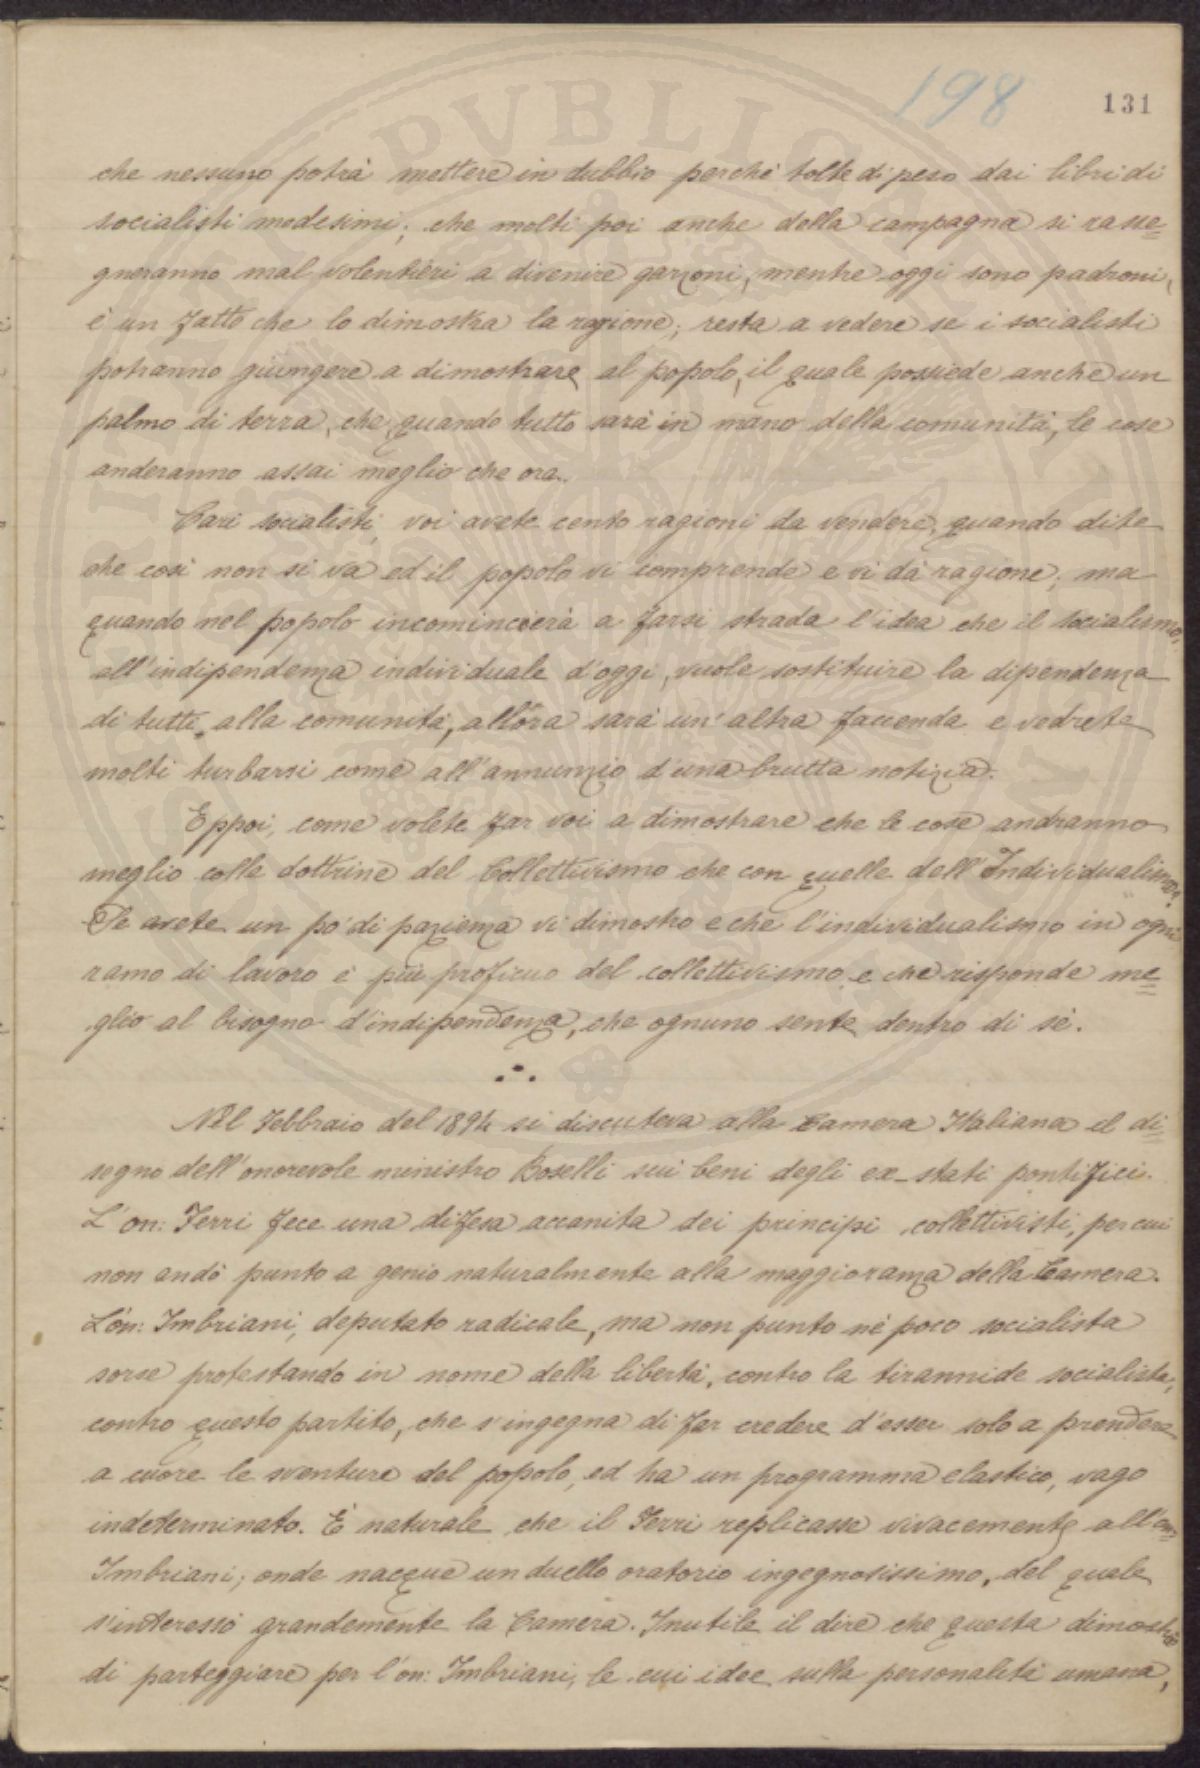 198
131
che nessuno potrà mettere in dubbio perchè tolte di peso dai libri di
socialisti medesimi; che molti poi anche della campagna si rasse=
gneranno mal volentieri a divenire garzoni, mentre oggi sono padroni,
è un fatto che lo dimostra la ragione; resta a vedere se i socialisti
potranno giungere a dimostrare al popolo, il quale possiede anche un
palmo di terra, che, quando tutto sarà in mano della comunità, le cose
anderanno assai meglio che ora.
Cari socialisti, voi avete cento ragioni da vendere, quando dite
che così non si và ed il popolo vi comprende e vi dà ragione; ma
quando nel popolo incomincierà a farsi strada l'idea che il socialismo,
all'indipendenza individuale d'oggi, vuole sostituire la dipendenza
di tutti alla comunità, allora sarà un'altra faccenda e vedrete
molti turbarsi come all'annunzio d'una brutta notizia.
Eppoi, come volete far voi a dimostrare che le cose andranno
meglio colle dottrine del Collettivismo che con quelle dell'Individualismo?
Se avete un po' di pazienza vi dimostro e che l'individualismo in ogni
ramo di lavoro è più proficuo del collettivismo e che risponde me=
glio al bisogno d'indipendenza, che ognuno sente dentro di sè.
Nel Febbraio del 1894 si discuteva alla Camera Italiana il di=
segno dell'onorevole ministro Boselli sui beni degli ex-stati pontifici.
L'on: Ferri fece una difesa accanita dei principi collettivisti, per cui
non andò punto a genio naturalmente alla maggioranza della Camera.
L'on: Imbriani, deputato radicale, ma non punto nè poco socialista
sorse protestando in nome della libertà, contro la tirannide socialista,
contro questo partito, che s'ingegna di far credere d'esser solo a prendere
a cuore le sventure del popolo, ed ha un programma elastico, vago
indeterminato. È naturale che il Ferri replicasse vivacemente all'on:
Imbriani; onde nacque un duello oratorio ingegnosissimo, del quale
s'interessò grandemente la Camera. Inutile il dire che questa dimostrò
di parteggiare per l'on: Imbriani, le cui idee sulla personalità umana,